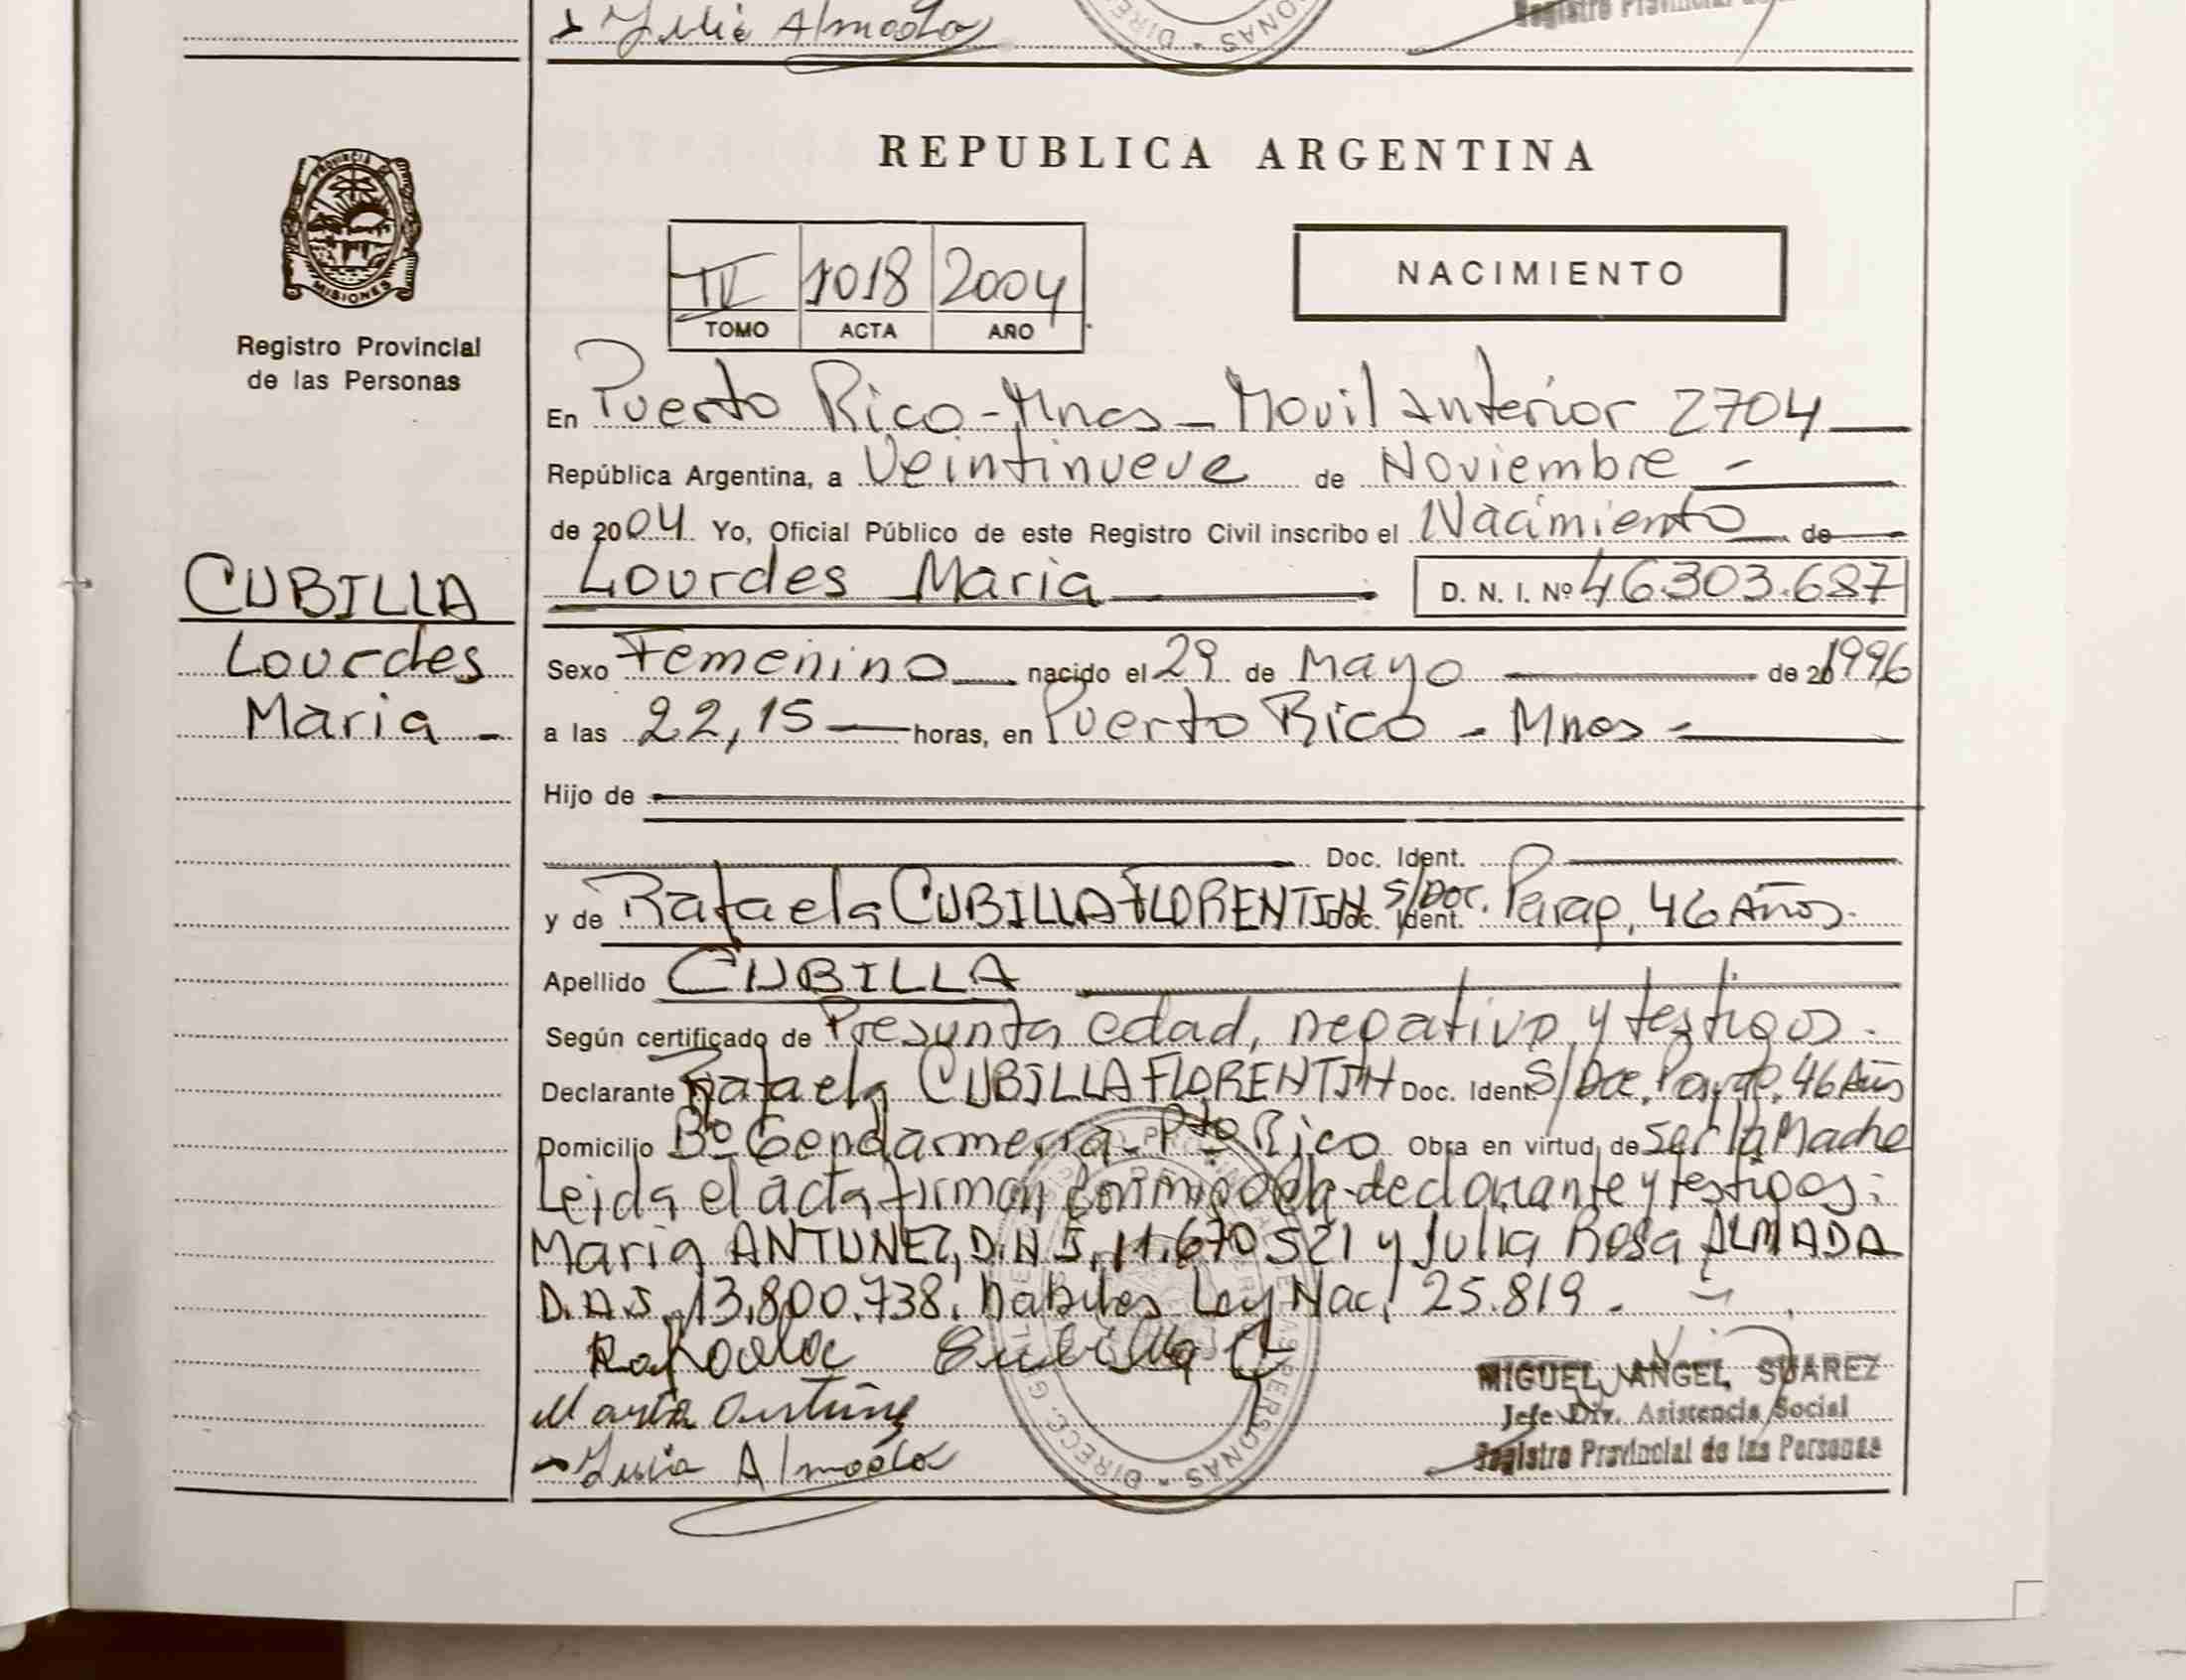 Julia Almada
DIRE
SONAS
Registro Provincial
REPUBLICA ARGENTINA
PROVINCIA
MISIONES
Registro Provincial
de las Personas
IV 1018 2004
TOMO ACTA AÑO
NACIMIENTO
En Puerto Rico - Mnes - Movil anterior 2704
República Argentina, a Veintinueve de Noviembre -
de 2004 Yo, Oficial Público de este Registro Civil inscribo el Nacimiento de
CUBILLA
Lourdes
Maria -
Lourdes Maria D. N. I. Nº 46.303.687
Sexo Femenino nacido el 29 de Mayo de 20 1996
a las 22,15 horas, en Puerto Rico - Mnes -
Hijo de
Doc. Ident.
y de Rafaela CUBILLA FLORENTIN Doc. Ident. S/Doc. Parag, 46 Años.
Apellido CUBILLA
Según certificado de Presunta edad, negativo y testigos.
Declarante Rafaela CUBILLA FLORENTIN Doc. Ident. S/Doc. Parag, 46 Años
Domicilio Bº Gendarmeria - Pto Rico Obra en virtud de ser la Madre
Leida el acta firman conmigo la declarante y testigos:
Maria ANTUNEZ, D.N.I. 11.670.521 y Julia Rosa ALMADA
D.N.I. 13.800.738. habiles Ley Nac. 25.819. -
Rafaela Cubilla
Maria Antunez
Julia Almada
MIGUEL ANGEL SUAREZ
Jefe Div. Asistencia Social
Registro Provincial de las Personas